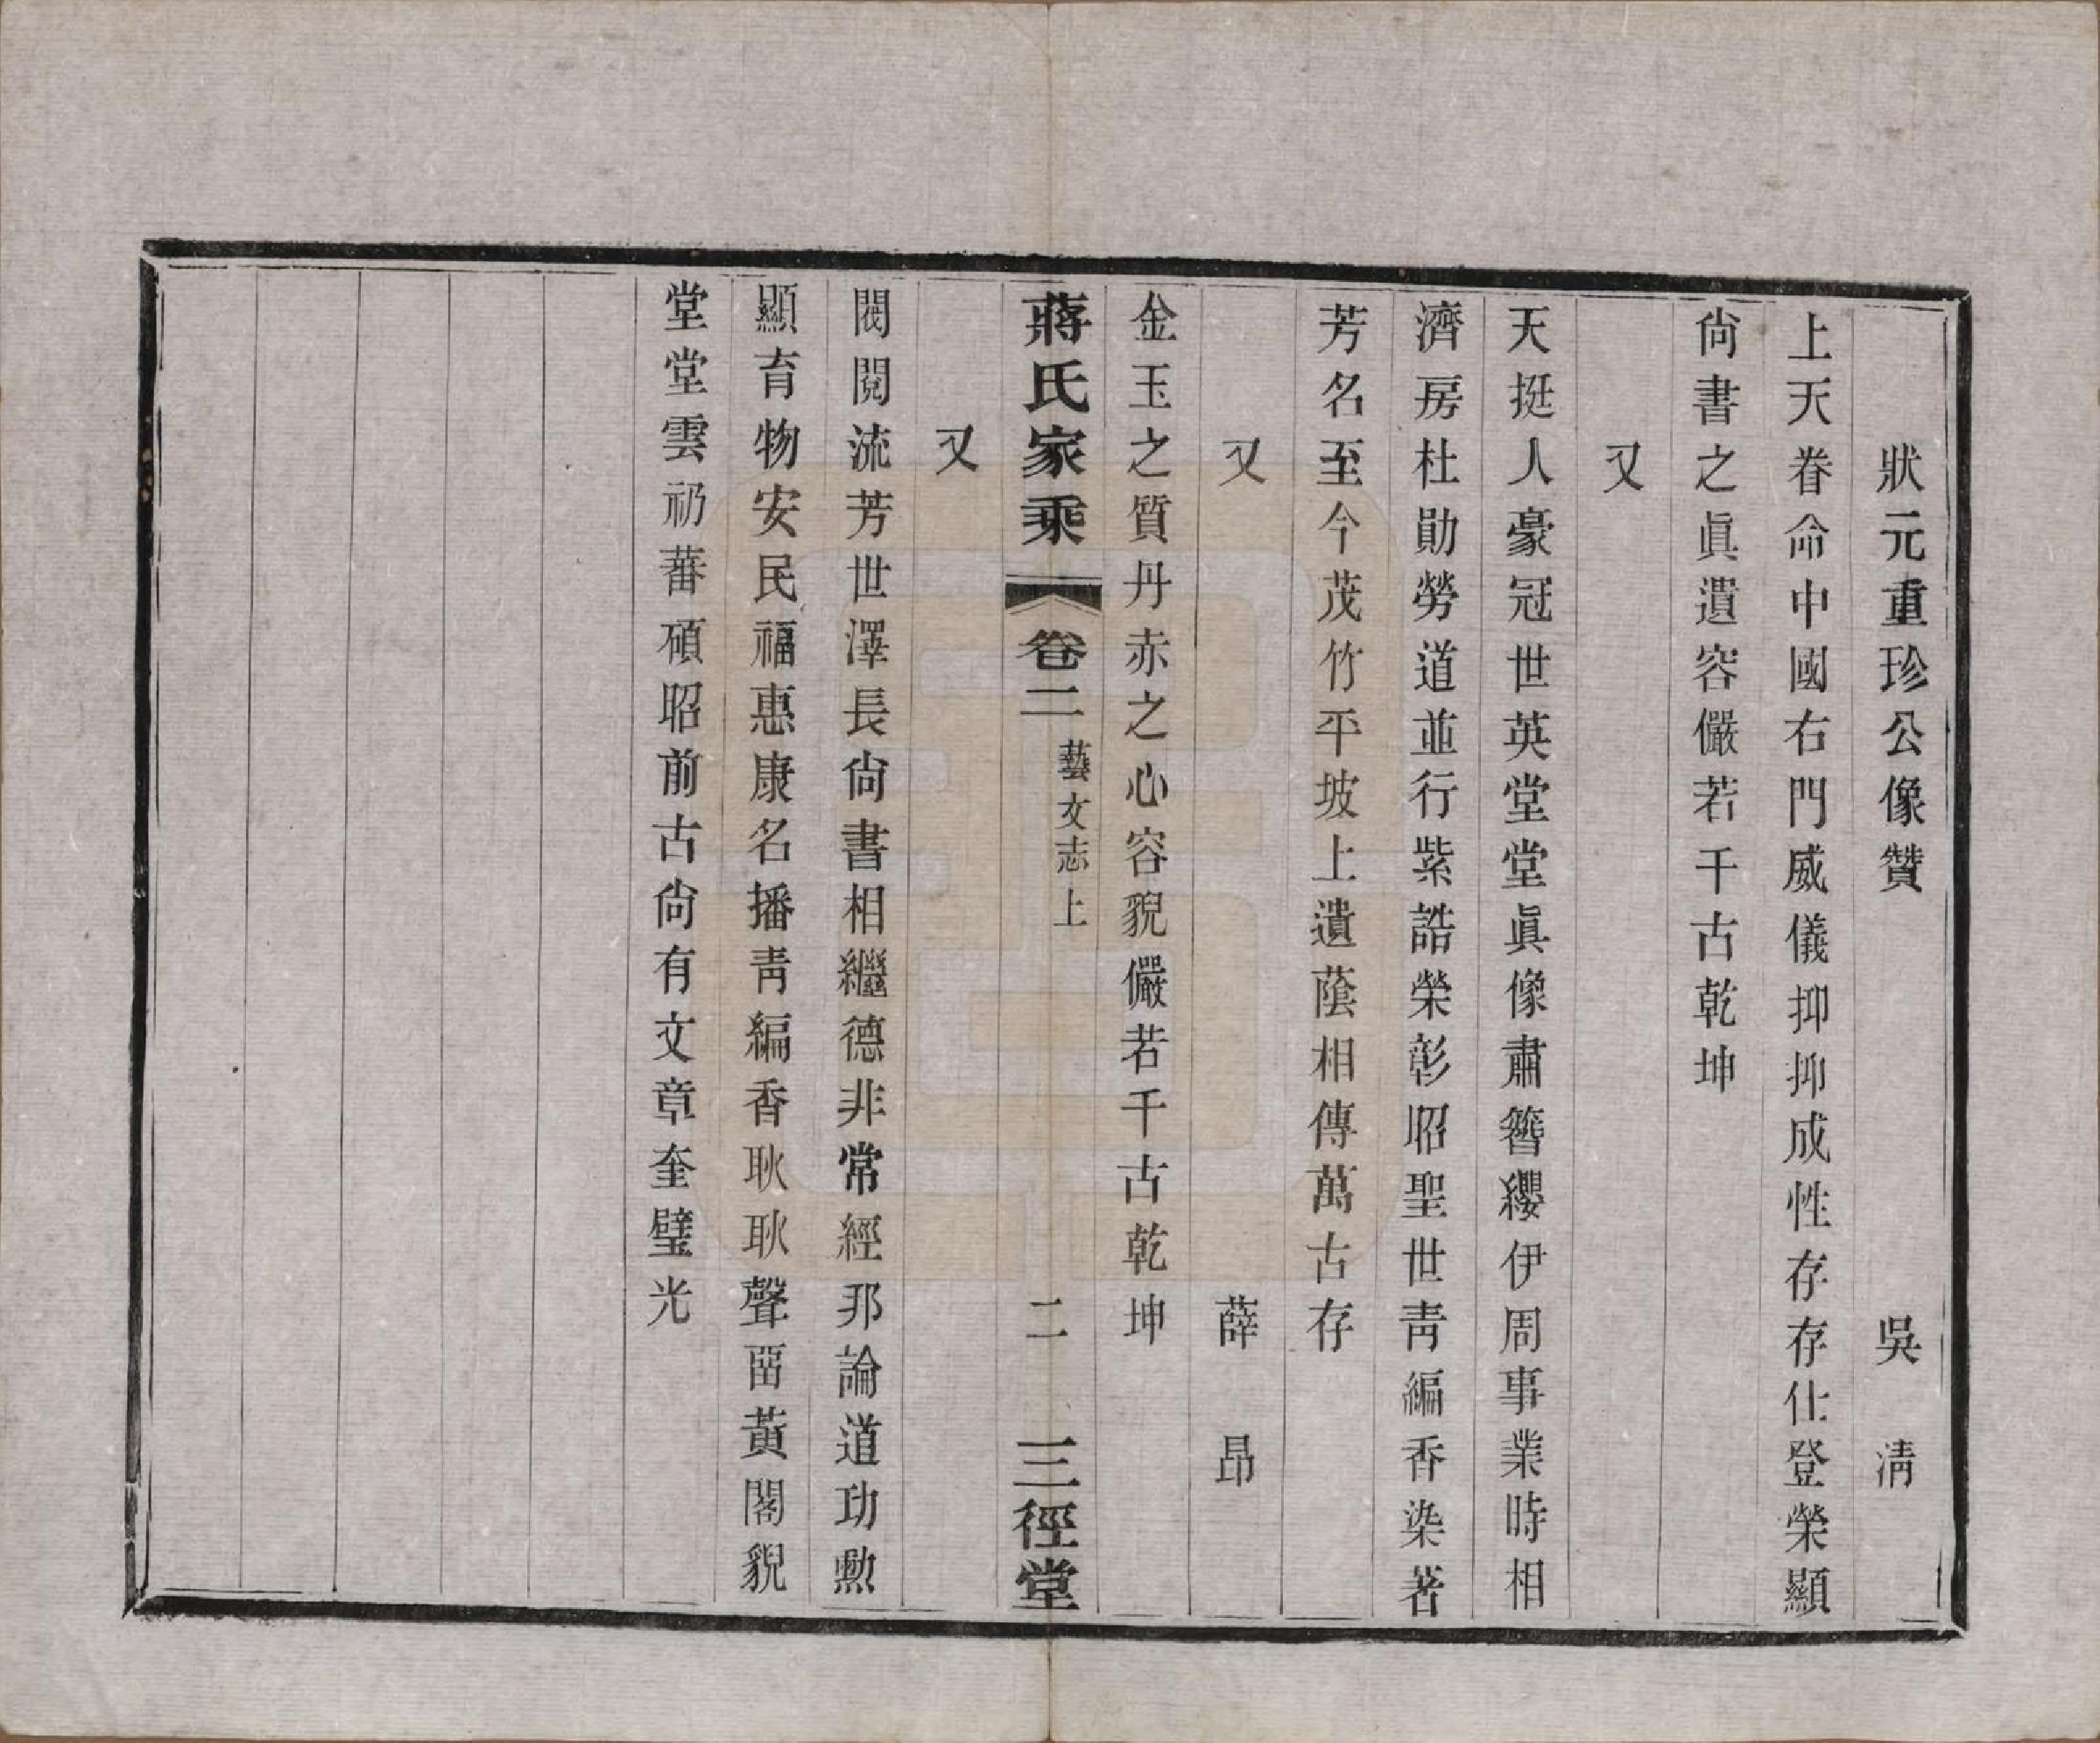 狀元重珍公像贊 吳淸
上天眷命中國右門威儀抑抑成性存存仕登榮顯
尙書之眞遺容儼若千古乾坤
又
天挺人豪冠世英堂堂眞像肅簪纓伊周事業時相
濟房杜勛勞道並行紫誥榮彰昭聖世靑編香染著
芳名至今茂竹平坡上遺蔭相傳萬古存
又 薛昂
金玉之質丹赤之心容貌儼若千古乾坤
蔣氏家乘 卷二 藝文志上 二 三徑堂
又
閥閱流芳世澤長尙書相繼德非常經邦論道功勲
顯育物安民福惠康名播靑編香耿耿聲畱黃閣貌
堂堂雲礽蕃碩昭前古尙有文章奎璧光